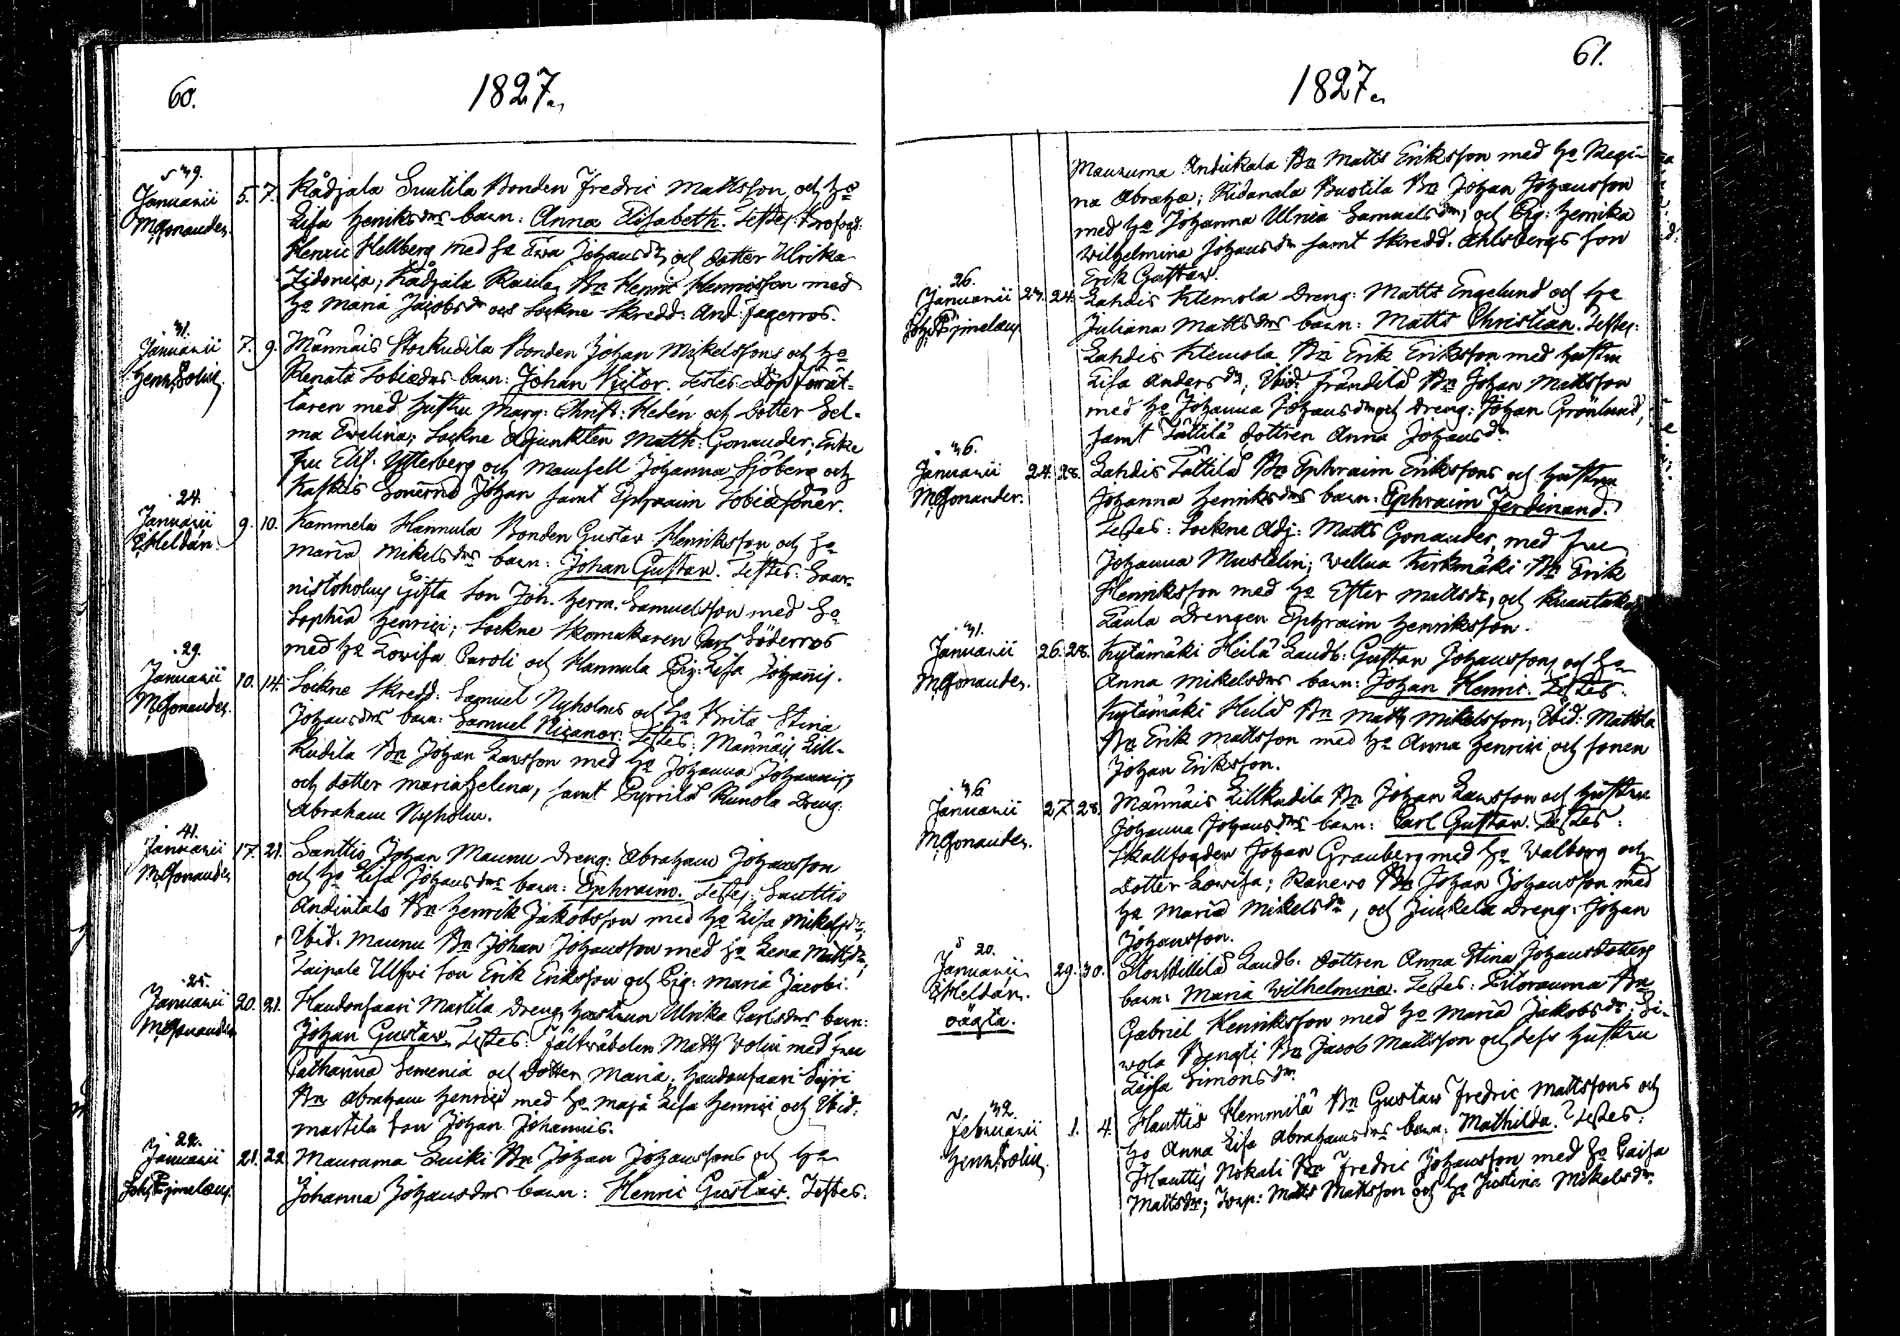 60.
1827.
39.
Januarii 5. 7. Rådjala Suutila Bonden Fredric Mattsson och Ho
M. Gonander. Lisa Henriksdrs barn: Anna Elisabeth. Testes: Profosd:
Henric Hellberg med Ho Ewa Johansdr, och dotter Ulrika
Zidonia; Rådjala Bn Henric Henricsson med
Ho Maria Jacobsdr och Sockne Skredd: And: Fagerros.
31.
Januarii 7. 9. Männäis Storkudila Bonden Johan Mikelssons och Ho
Henr. Polin Renata Tobiædrs barn: Johan Victor. Testes:
taren med hustru Marg: Christ: Hedén och dotter Sel-
ma Ewelina; Sockne Adjunkten Matth: Gonander; Enke
fru Elis: Ytterberg och Mamsell Johanna Sjöberg och
Johan samt Ephraim Tobiæsöner.
24.
Januarii 9. 10. Kammela Hannula Bonden Gustav Henriksson och Ho
E. Heldán. Maria Mikelsdrs barn: Johan Gustav. Testes: Saar-
nistoholms gifta son Joh. Herm. Samuelsson med Ho
Sophia Henrici; Sockne Skomakaren Carl Söderros
med Ho Lovisa Caroli och Hannula Pig: Lisa Johannis.
29.
Januarii 10. 14. Sockne Skredd: Samuel Nyholms och Ho Brita Stina
M. Gonander. Johansdrs barn: Samuel Nicanor. Testes: Männäis Lill-
kudila Bn Johan Larsson med Ho Johanna Johannis
och dotter Maria Helena, samt Pyrrilä Runola Dreng:
Abraham Nyholm.
41.
Januarii 17. 21. Santtio Johan Maunu Dreng: Abraham Johansson
M. Gonander och Ho Lisa Johansdrs barn: Ephraim. Testes: Santtio
Andintalo Bn Henrik Jakobsson med Ho Lisa Mikelsdr;
Ibid: Maunu Bn Johan Johansson med Ho Lena Mattsdr,
Taipale Ulfvi son Erik Eriksson och Pig: Maria Jacobi.
25.
Januarii 20. 21. Haudonsaari Martila Dreng: hustrun Ulrika Carlsdrs barn:
M. Gonander Johan Gustav. Testes: Fältväbeln Matts Volin med fru
Catharina Semenia och dotter Maria; Haudonsaari Säyri
Bn Abraham Henrici med Ho Maja Lisa Henrici och Ibid:
Martila son Johan Johannis.
22.
Januarii 21. 22 Maurama Luiki Bn Johan Johanssons och Ho
Joh. Pijmelæus. Johanna Johansdrs barn: Henric Gustav. Testes:
61.
1827.
Maurama Andukala Bn Matts Eriksson med Ho Regi-
na Abrahæ; Ridanala Buotila Bn Johan Johansson
med Ho Johanna Ulrica Samuelsdr, och Pig: Henrika
Wilhelmina Johansdr samt Skredd: Ahlbergs son
Erik Gustaw.
26.
Januarii 23. 24. Lahdis Klemola Dreng: Matts Engelund och Ho
Joh. Pijmelæus Juliana Mattsdrs barn: Matts Christian. Testes:
Lahdis Klemola Bn Erik Eriksson med hustru
Lisa Andersdr, Ibid: Frändilä Bn Johan Mattsson
med Ho Johanna Johansdr och Dreng: Johan Grönlund,
samt Tättilä dottren Anna Johansdr
36.
Januarii 24. 28. Lahdis Tättilä Bn Ephraim Erikssons och hustru
M. Gonander. Johanna Henriksdrs barn: Ephraim Ferdinand.
Testes: Sockne Adj: Matts Gonander, med fru
Johanna Mustelin; Vellua Kirkmäki Bn Erik
Henriksson med Ho Ester Mattsdr, och
Laula Drengen Ephraim Henriksson.
31.
Januarii 26. 28. Kytämäki Heilä Landb: Gustav Johanssons och Ho
M. Gonander. Anna Mikelsdrs barn: Johan Henric. Testes:
Kytämäki Heilä Bn Matts Mikelsson; Ibid: Mattila
Bn Erik Mattsson med Ho Anna Henrici och sonen
Johan Eriksson.
36
Januarii 27. 28. Männäis Lillkudila Bn Johan Larsson och hustru
M. Gonander. Johanna Johansdrs barn: Carl Gustav. Testes:
Skallfogden Johan Granberg med Ho Walborg och
dotter Lowisa; Ranero Bn Johan Johansson med
Ho Maria Mikelsdr, och Juckela Dreng: Johan
Johansson.
20.
Januarii 29. 30. Landb. dottren Anna Stina Johansdotters
E. Heldán. barn: Maria Wilhelmina. Testes: Pilorauma Bn
oägta. Gabriel Henriksson med Ho Maria Jakobsdr; Si-
wola Bengti Bn Jacob Mattsson och dess hustru
Lisa Simonsdr.
32.
Februarii 1. 4. Hauttis Hemmilä Bn Gustaw Fredric Mattssons och
Henr. Polin Ho Anna Lisa Abrahamsdrs barn: Mathilda. Testes:
Hauttis Nokali Bn Fredric Johansson med Ho Caisa
Mattsdr; Matts Mattsson och Ho Justina Mikelsdr.